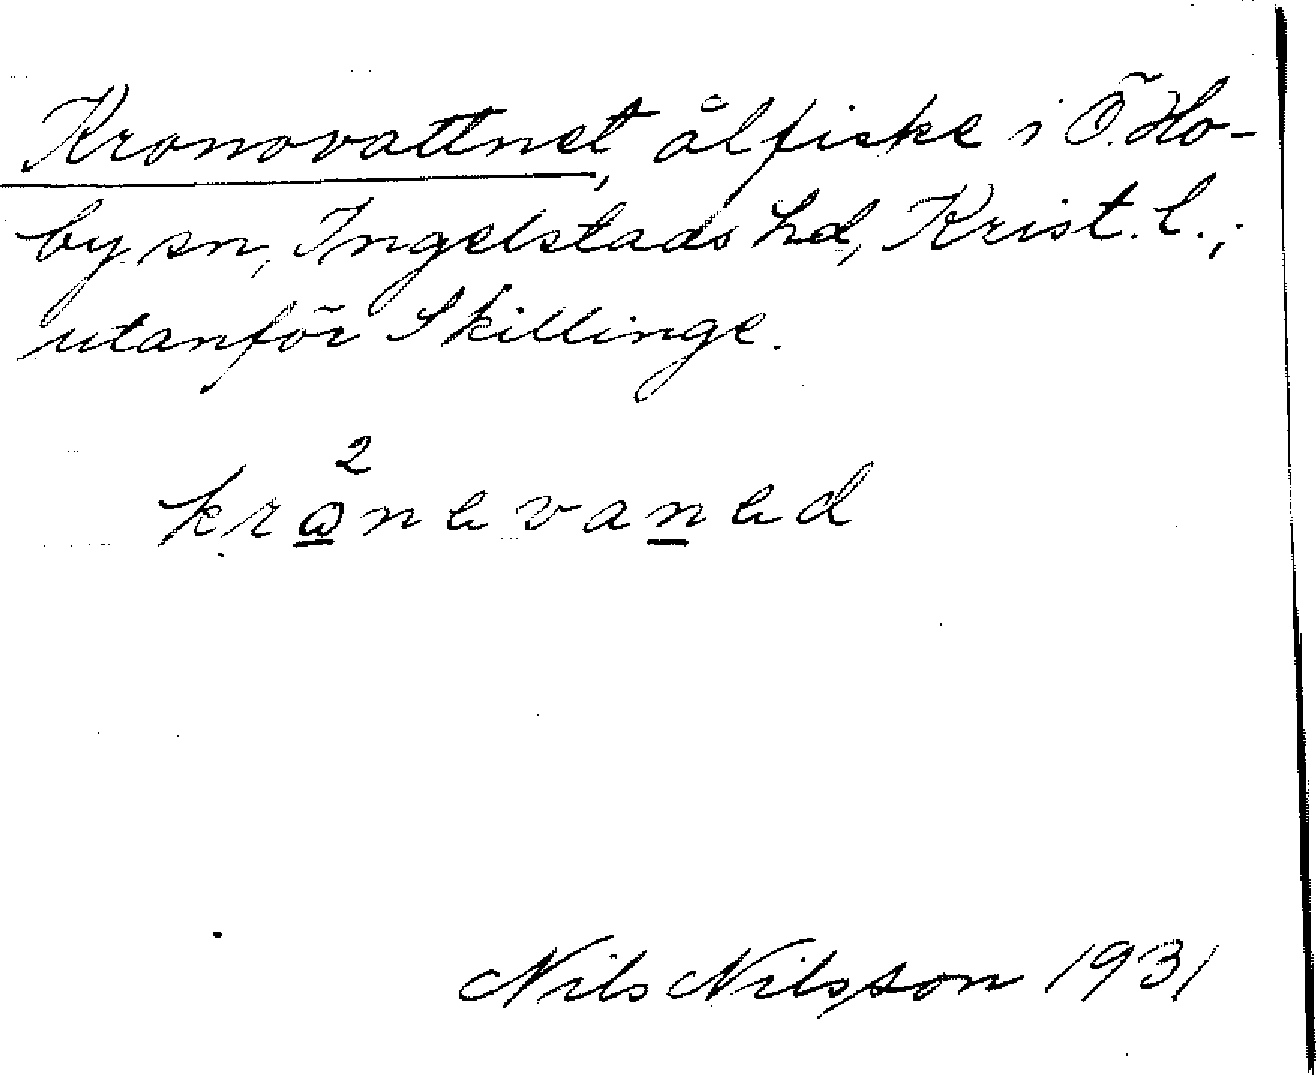 Kronovattnet, ålfiske i Ö. Ho-
by sn, Ingelstads hd, Krist. l.;
utanför Skillinge.
2
Nils Nilsson 1931